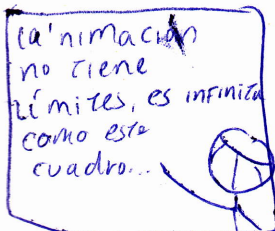 la'nimación
no tiene
límites, es infinita
como este
cuadro...